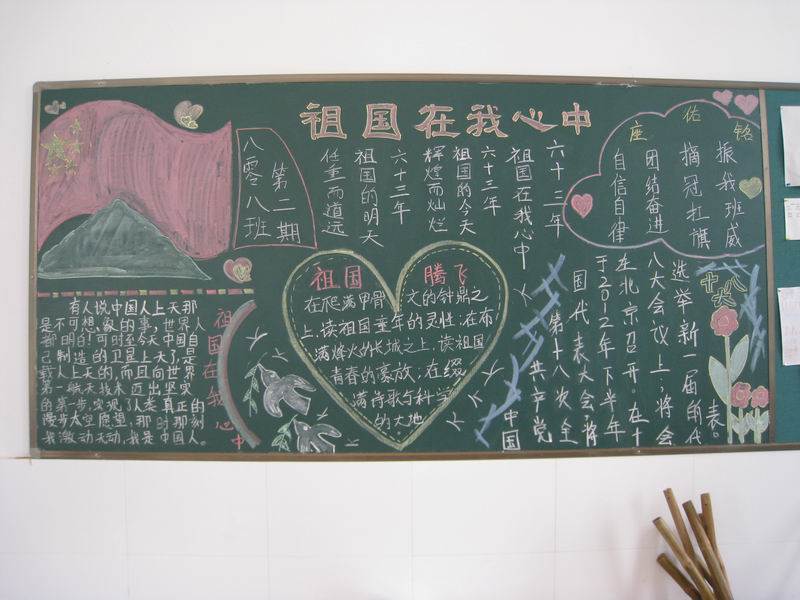 祖国在我心中
八零八班
第二期
六十三年
祖国在我心中
六十三年
祖国的今天
辉煌而灿烂
六十三年
祖国的明天
任重而道远
座佑铭
振我班威
摘冠扛旗
团结奋进
自信自律
有人说中国人上天那
是不可想象的事,世界人
都明白!可时至今天中国自
己制造的卫星上天了,是
载人上天的,而且向世界
第一航天技术迈出坚实
的第一步,实现了人类真正的
漫步太空愿望,那时那刻
我激动无动,我是中国人。
祖国在我心中
祖国 腾飞
在爬满甲骨文的钟鼎之
上,读祖国童年的灵性;在布
满烽火的长城之上,读祖国
青春的豪放;在缀
满诗歌与科学
的大地
中国
共产党
第十八次全
国代表大会将
于2012年下半年
在北京召开。在十
八大会议上,将会
选举新一届的代
表。
十八大